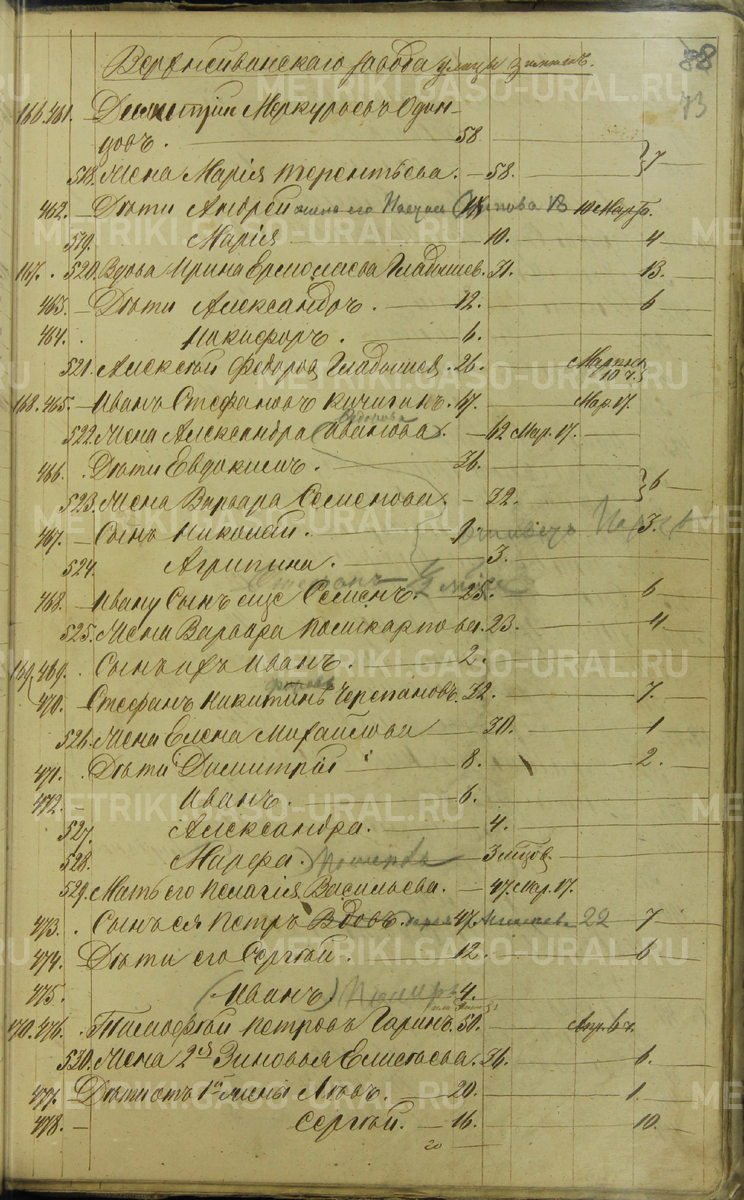 88
73
Верхнейвинскаго завода улицы
166. 461. Димитрий Меркурьевъ Один-
цовъ. 58
518. Жена Марія Терентьева. 58. 7
462. Дѣти Андрей жена его 18 10 Март.
519. Марія 10. 4
167. 520. Вдова Ирина Ермолаева Гладышев. 31. 13.
463. Дѣти Александръ. 12. 6
464. Никифоръ. 6.
521. Алексѣй Федоров Гладышев 26. 10 ч.
168. 465. Иванъ Стефановъ Кичигинъ. 67. Мар. 17.
522. Жена Александра (Иванова). 62 Мар. 17.
466. Дѣти Евдокимъ. 36.
523. Жена Варвара Семенова. 32. 6
467. Сынъ Николай. 9. 3.
524. Агрипина. 3.
Стефанъ 1/2
468. Ивану Сынъ еще Семенъ. 25. 6
525. Жена Варвара Поликарпова. 23. 4
169. 469. Сынъ ихъ Иванъ. 2.
470. Стефанъ Никитинъ Черепановъ. 32. 7.
526. Жена Елена Михайлова 30. 1
471. Дѣти Димитрій 8. 2.
472. Иванъ. 6.
527. Александра. 4.
528. Марфа. 3 мѣсяц.
529. Мать его Пелагія Васильева. 47. Мар. 17.
473. Сынъ ея Петръ Вдовъ. 47. 22 7
474. Дѣти его Сергѣй. 12. 6
475. (Иванъ.) Померъ 4.
170. 476. Тимофѣй Петровъ Гаринъ. 50. Апр. 6 ч.
530. Жена 2й Зиновья Елисѣева. 36. 6.
477. Дѣти отъ 1й жены Яковъ. 20. 1.
478. Сергѣй. 16. 10.
20
METRIKI.GASO-URAL.RU